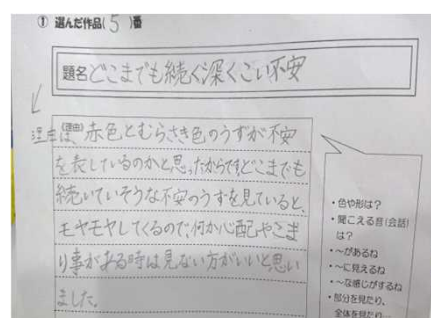 ① 選んだ作品(5)番
題名 どこまでも続く深くこい不安
理由は、(理由)赤色とむらさき色のうずが不安
を表しているのかと思ったからです。どこまでも
続いていそうな不安のうずを見ていると、
モヤモヤしてくるので、何か心配やこま
り事がある時は見ない方がいいと思い
ました。
・色や形は?
・聞こえる音(会話)
は?
・~があるね
・~に見えるね
・~な感じがするね
・部分を見たり、
全体を見たり…